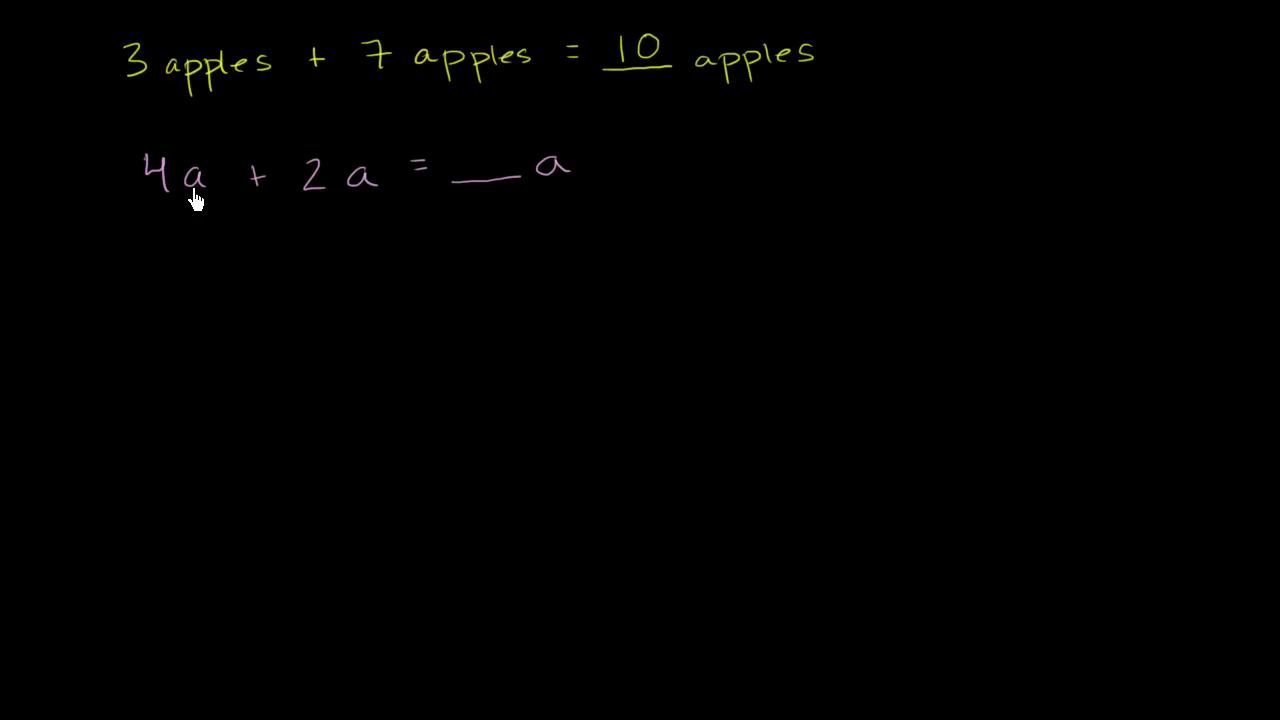 3 apples + 7 apples = 10 apples
4a + 2a = __ a